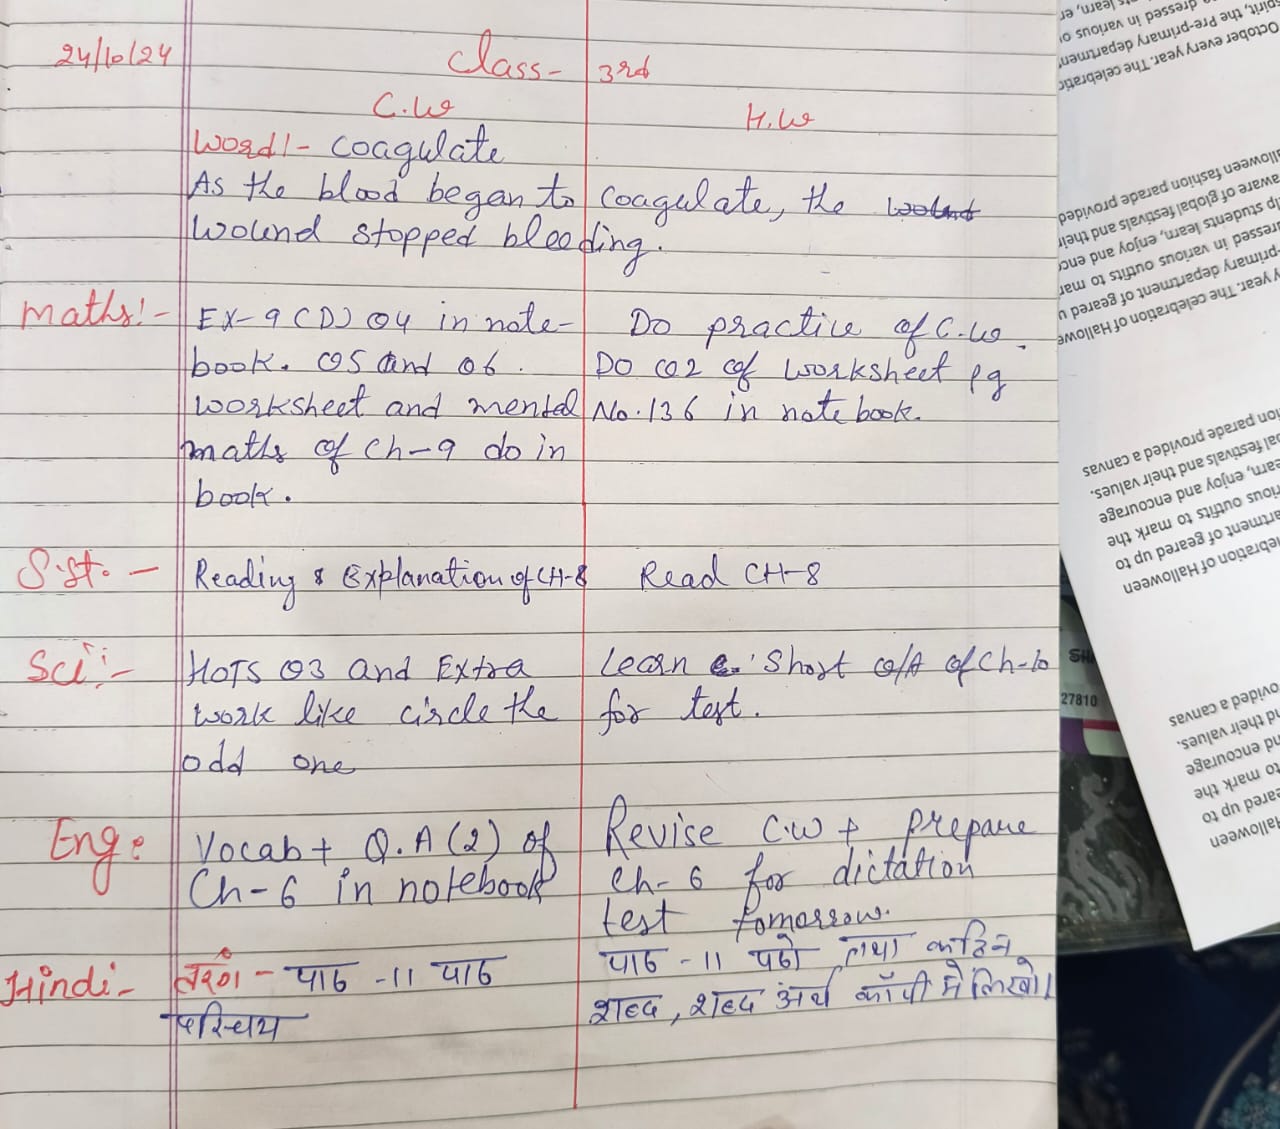 24/10/24 Class- 3rd
C.W H.W
Word!- Coagulate
As the blood began to coagulate, the
wound stopped bleeding.
Maths!- Ex-9 (D) Q4 in note- Do practice of C.W.
book. Q5 and Q6. Do Q2 of worksheet pg
worksheet and mental No. 136 in notebook.
maths of Ch-9 do in
book.
S.st. - Reading & Explanation of CH-8 Read CH-8
Sci:- HOTS Q3 and Extra Learn Short Q/A of Ch-10
work like circle the for test.
odd one
Eng: Vocab + Q.A (2) of Revise C.W + prepare
Ch-6 in notebook Ch-6 for dictation
test tomorrow.
Hindi- तरंग - पाठ -11 पाठ पाठ -11 पढो तथा कठिन
परिचय शब्द, शब्द अर्थ कॉपी में लिखो।
October every year. The celebration
spirit, the Pre-primary department
dressed in various
learn,
Halloween fashion parade provided
aware of global festivals and their
students learn, enjoy and
dressed in various outfits to mark
-primary department of geared
year. The celebration of
parade provided a canvas
festivals and their values.
learn, enjoy and encourage
outfits to mark the
of geared up to
of Halloween
a canvas
their values.
encourage
to mark the
up to
Halloween
27810